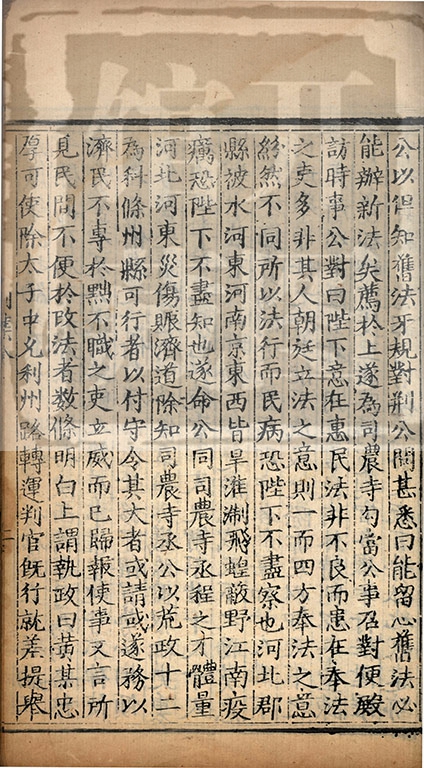 公以但知舊法牙規對荆公聞甚悉曰能留心舊法必
能辦新法矣薦於上遂為司農寺勾當公事召對便殿
訪時事公對曰陛下意在惠民法非不良而患在奉法
之吏多非其人朝廷立法之意則一而四方奉法之意
紛然不同所以法行而民病恐陛下不盡察也河北郡
縣被水河東河南京東西皆旱淮淛飛蝗蔽野江南疫
癘恐陛下不盡知也遂命公同司農寺丞程之才體量
河北河東災傷賑濟道除知司農寺丞公以荒政十二
為科條州縣可行者以付守令其大者或請或遂務以
濟民不專於黜不職之吏立威而已歸報使事又言所
見民間不便於政法者数條明白上謂執政曰黄某忠
厚可使除太子中允利州路轉運判官旣行就差提舉
二